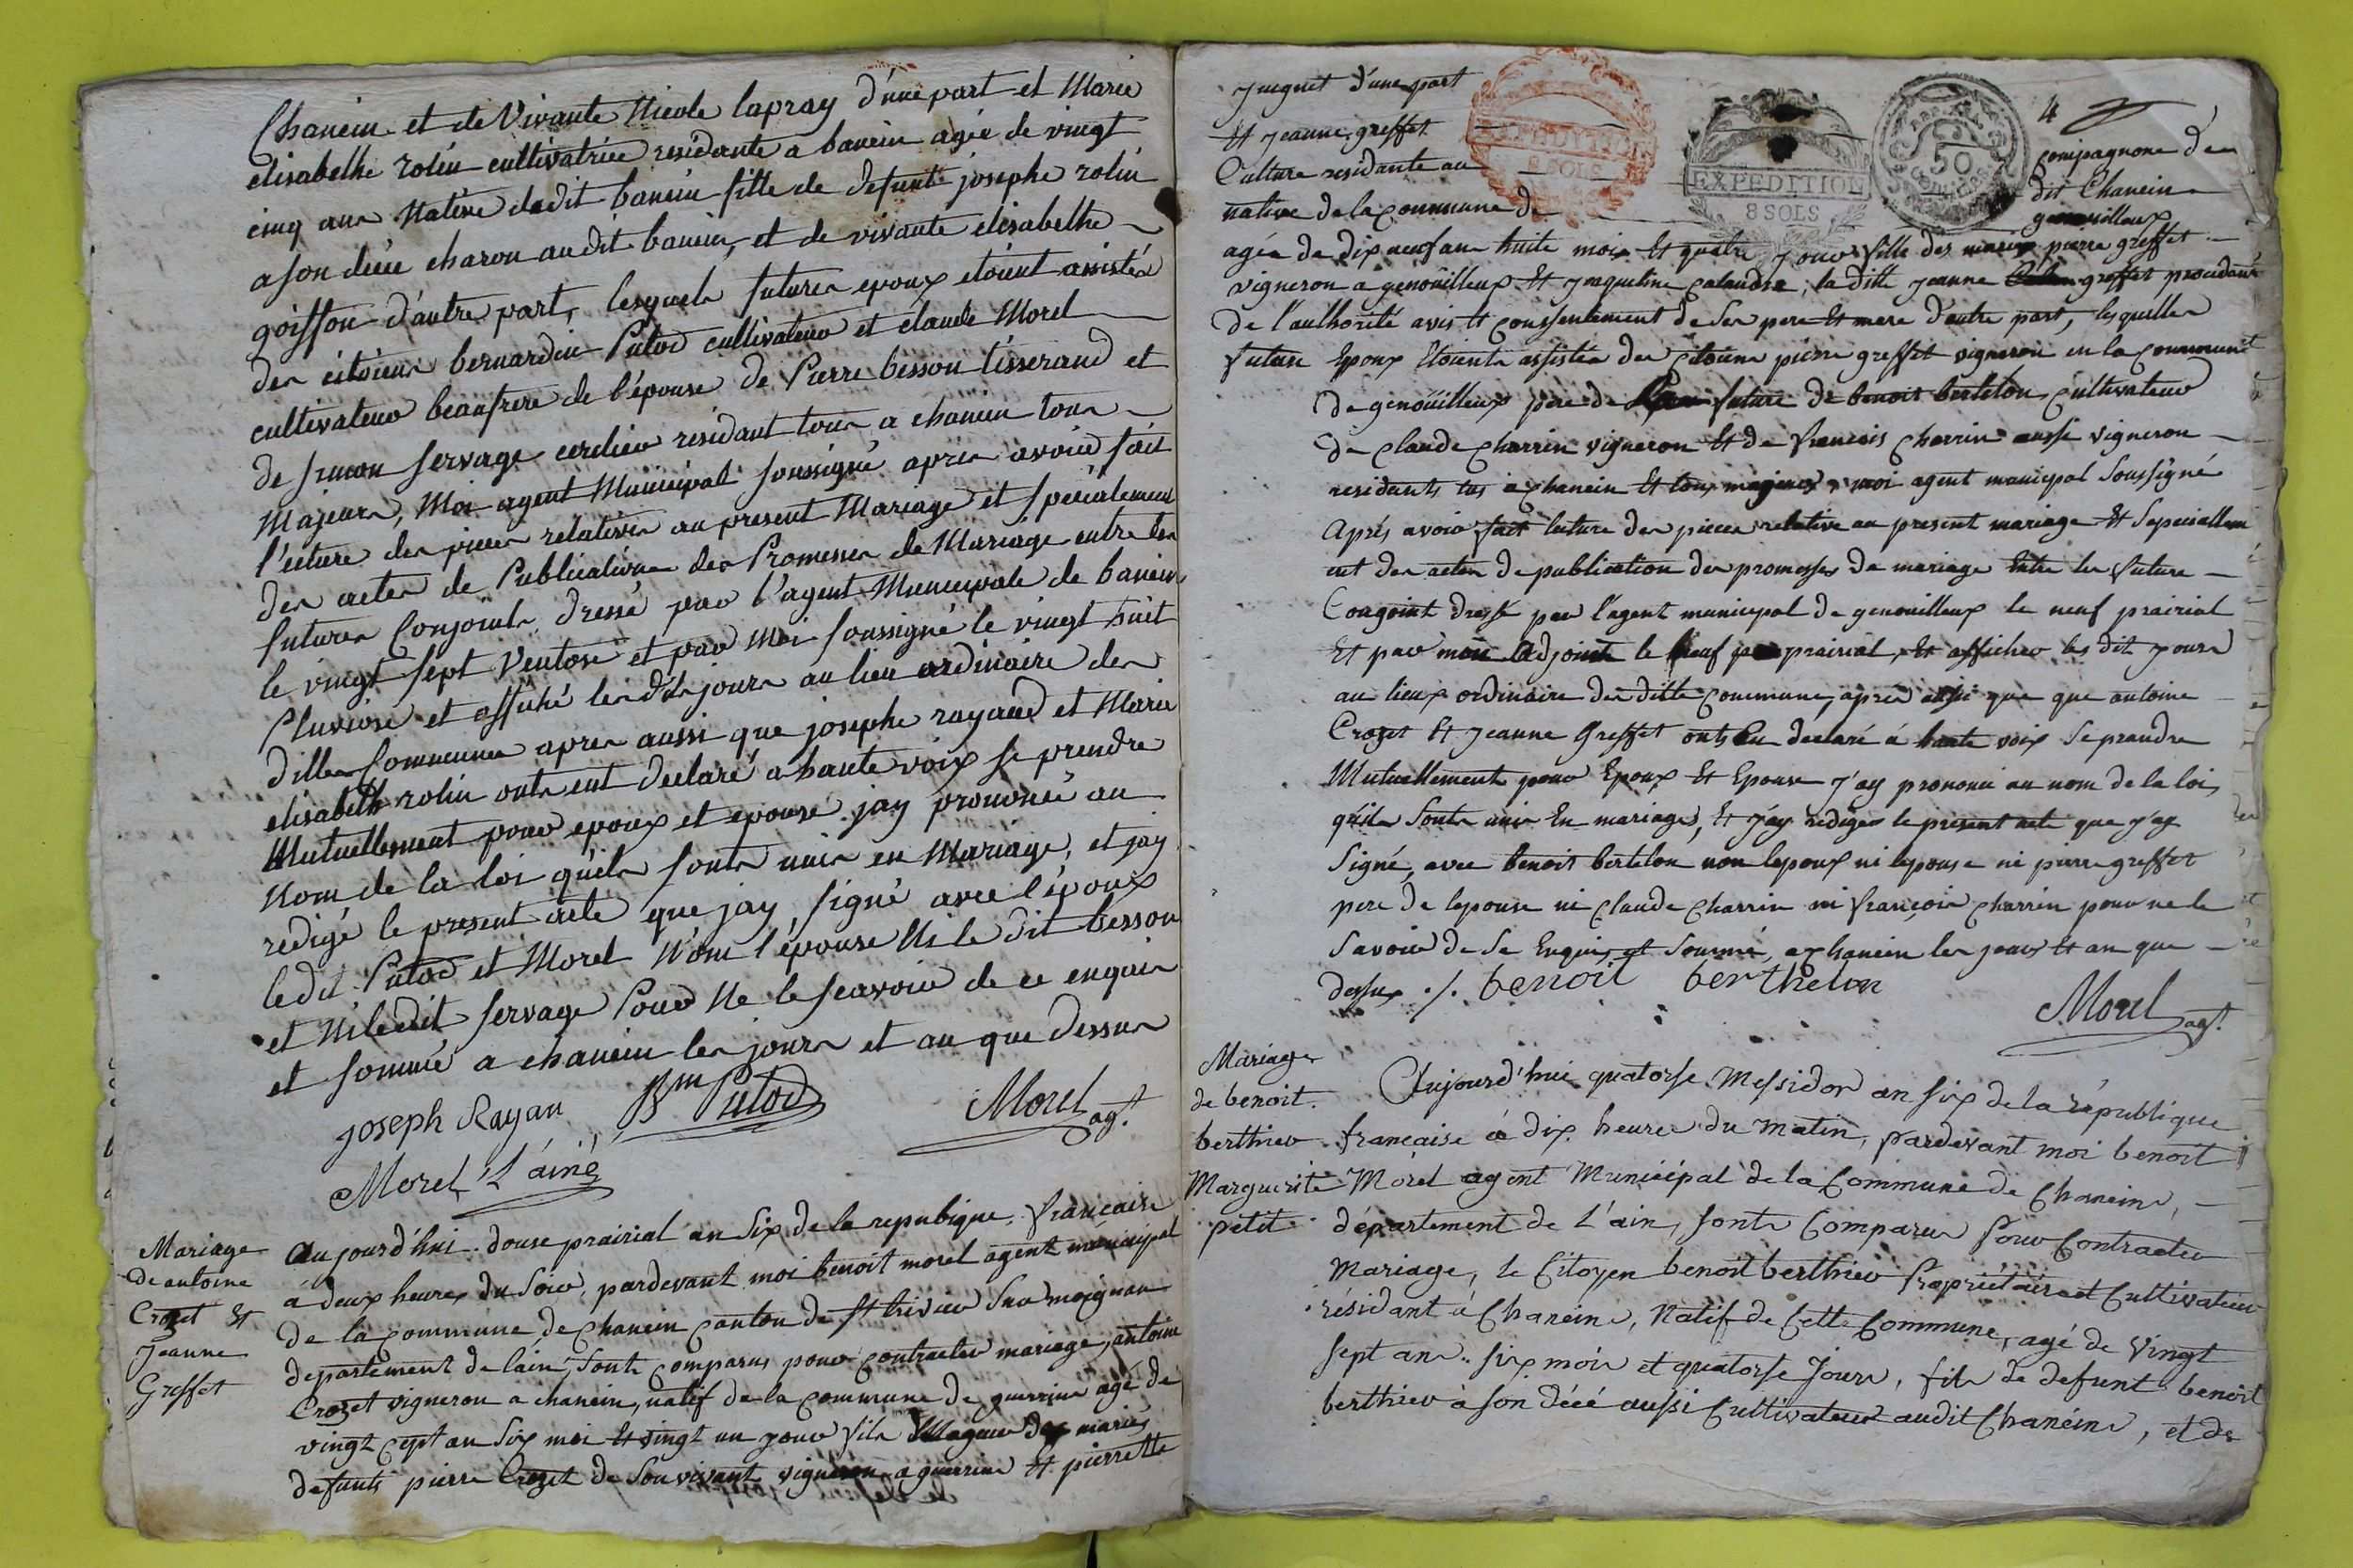 Chanein et de Vivante Nicole lapray d'une part et Marie
elisabethe rolin cultivatrice residante a banein agée de vingt
cinq ans Native dudit banein fille de defunt josephe rolin
a son décé charon audit banein, et de vivante elisabethe
goisson d'autre part, lesquels futures epoux etoient assistés
des citoiens bernardin Putod cultivateur et claude Morel
cultivateur beaufrere de l'épouse de Pierre besson tisserand et
de simon servage cordier residant tous a chanein tous
Majeurs, Moi agent Municipal soussigné apres avoir fait
l'ecture des pieces relatives au present Mariage et specialement
des actes de Publications des Promesses de Mariage entre les
futures Conjoints, dressé par l'agent Municipale de banein
le vingt sept Ventose et par Moi soussigné le vingt huit
Pluviose et affiché les dits jours au lieu ordinaire des
dittes Communes apres aussi que josephe rayand et Marie
elisabeth rolin onts eut declaré a haute voix se prendre
Mutuellement pour epoux et epouse jay prononcé au
Nom de la loi quils sonts unis en Mariage, et jay
redigé le present acte que jay signé avec l'époux
ledit Putod et Morel Non l'épouse Ni le dit besson
et Ni ledit servage Pour Ne le scavoir de ce enquis
et sommé a chanein les jours et an que dessus
joseph Rayan Bm Putod Morel agt.
Morel L'ainé
Mariage
de antoine
Crozet Et
Jeanne
Greffet
aujourd'hui douse prairial an Six de la repubique française
à deux heures du Soir, pardevant moi benoit morel agent municipal
de la commune de chanein canton de St trivier Sur moignan
departement de lain, Sont comparus pour contracter mariage, antoine
Crozet vigneron a chanein, natif de la commune de guerrins agé de
vingt cept an Six moi Et vingt un jour fils Mageur des mariés
defunts pierre Crozet de Son vivant vigneron a guerrins Et pierrette
juignet d'une part
Et jeanne greffet
Culture residante au
native de la commune de
4
compagnone de
dit Chanein
genouilleux
EXPEDITION
8 SOLS
EXPEDITION
8 SOLS
50
agée de dix neuf ans huite mois Et quatre jour fille des mariés pierre greffet
vigneron a genoüilleux Et jacqueline calandre, la ditte jeanne greffet procedante
de l'authorité avis Et conssentement de Ses pere Et mere d'autre part, lesquelles
future Epoux Etoients assistés des citoiens pierre greffet vigneron en la commune
de genoüilleux pere de future de benoit bertelon cultivateur
de claude charrin vigneron Et de francois charrin aussi vigneron
residants tus a chanein Et tous mageurs, moi agent municipal Soussigné
Après avoir fait lecture des pieces relative au present mariage Et Sepeciallem
ent des actes de publication des promesses de mariage Entre les future
Congoint dressé par l'agent municipal de genouilleux le neuf prairial
Et par moi Adjoint le neuf prairial, Et afficher les dit jours
au lieux ordinaire des ditte commune, apres ausi que que antoine
Crozet Et Jeanne Greffet onts Eu declaré á haute voix Se prandre
Mutuellement pour Epoux Et Epouse j'ay prononcé au nom de la loi,
quils Sonts unis En mariages, Et j'ay rediger le present acte que j'ay
Signé, avec benoit bertelon non lepoux ni lepouse ni pierre greffet
pere de lepouse ni claude charrin ni françois charrin pour ne le
Savoir de Se Enquis et Sommé, a chanein les jours Et an que
dessus ./. benoit berthelon
Morel agt.
Mariage
de benoit
berthier
Marguerite
petit
Aujourd'hui quatorse Messidor an six de la république
française à dix heures du matin, pardevant moi benoit
Morel agent Municipal de la Commune de Chaneins,
département de L'ain, sonts Comparus Pour Contracter
Mariage, le Citoyen benoit berthier Propriétaire et Cultivateur
résidant à Chaneins, Natif de Cette Commune, agé de Vingt
sept ans six mois et quatorse Jours, fils de defunt benoit
berthier à son décé aussi Cultivateur audit Chanéins, et de